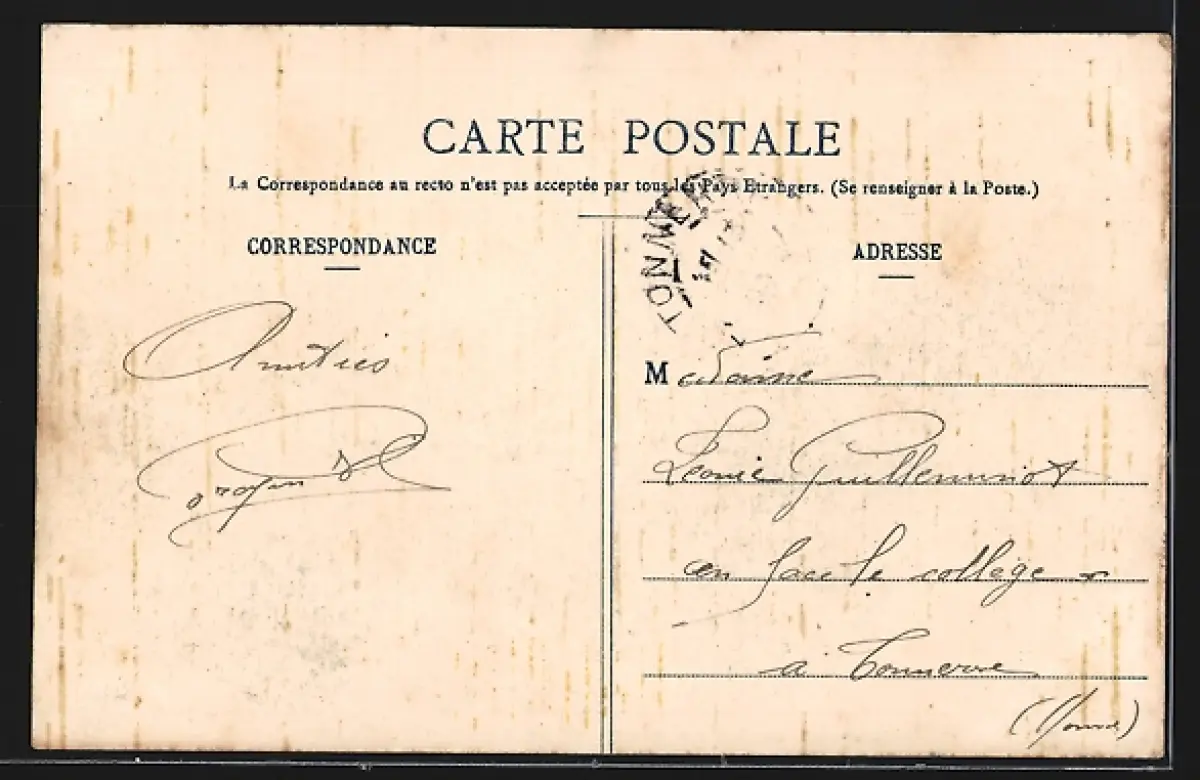 CARTE POSTALE
La Correspondance au recto n'est pas acceptée par tous les Pays Etrangers. (Se renseigner à la Poste.)
CORRESPONDANCE
ADRESSE
TONNERRE
Amitiés
Madame
Léonie Guilleminot
en face le collège
a Tonnerre
(Yonne)